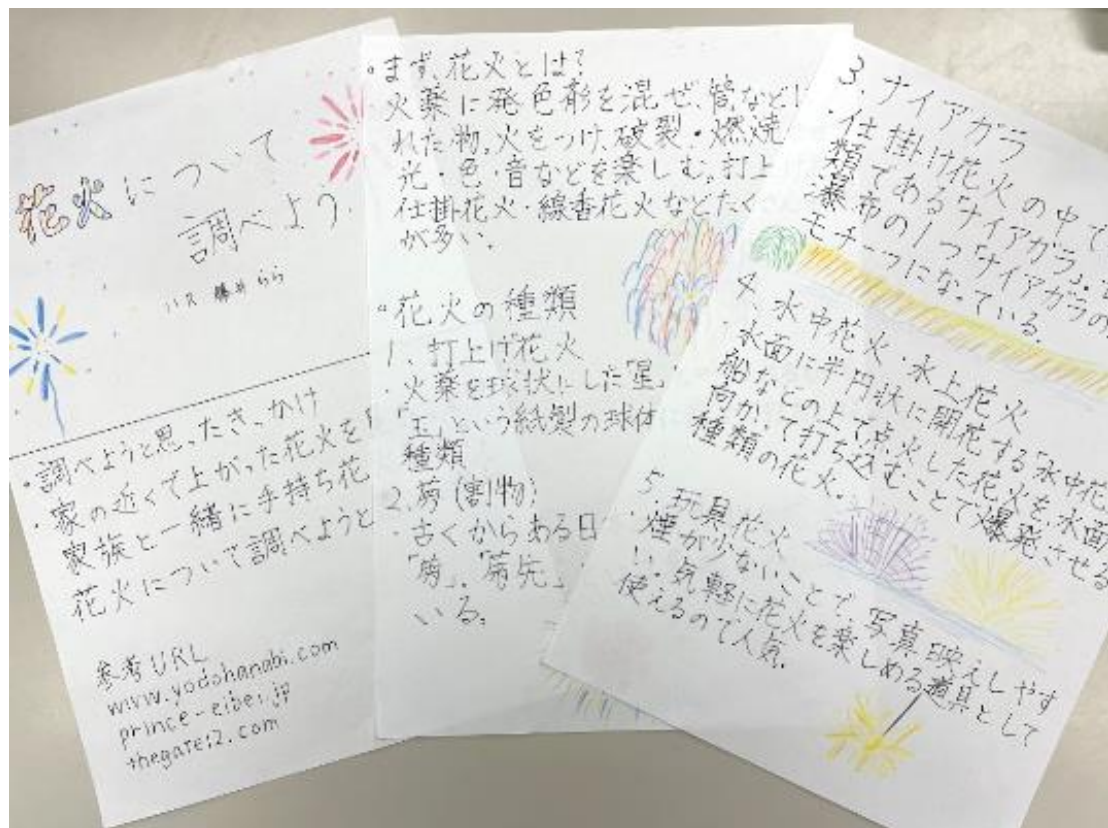 花火について
調べよう。
藤井らら
・調べようと思ったきっかけ
・家の近くで上がった花火を
家族と一緒に手持ち花
花火について調べようと
参考URL
www.yodohanabi.com
prince-eibei.jp
thegate12.com
○まず、花火とは?
火薬に発色剤を混ぜ、筒などに
れた物。火をつけ、破裂・燃焼
光・色・音などを楽しむ。打上げ
仕掛花火・線香花火などたく
が多い。
○花火の種類
1、打上げ花火
・火薬を球状にした「星」
「玉」という紙製の球体
種類
2.菊(割物)
・古くからある日
「菊」。「菊先」
いる。
3、ナイアガラ
・仕掛け花火の中で
類である「ナイアガラ」。
瀑布の1つ「ナイアガラの
モチーフになっている。
4、水中花火・水上花火
・水面に半円状に開花する「水中花
船などの上で点火した花火を、水面
向かって打ち込むことで爆発させる
種類の花火。
5.玩具花火
・煙が少ないことで、写真映えしやす
い。気軽に花火を楽しめる道具として
使えるので人気。